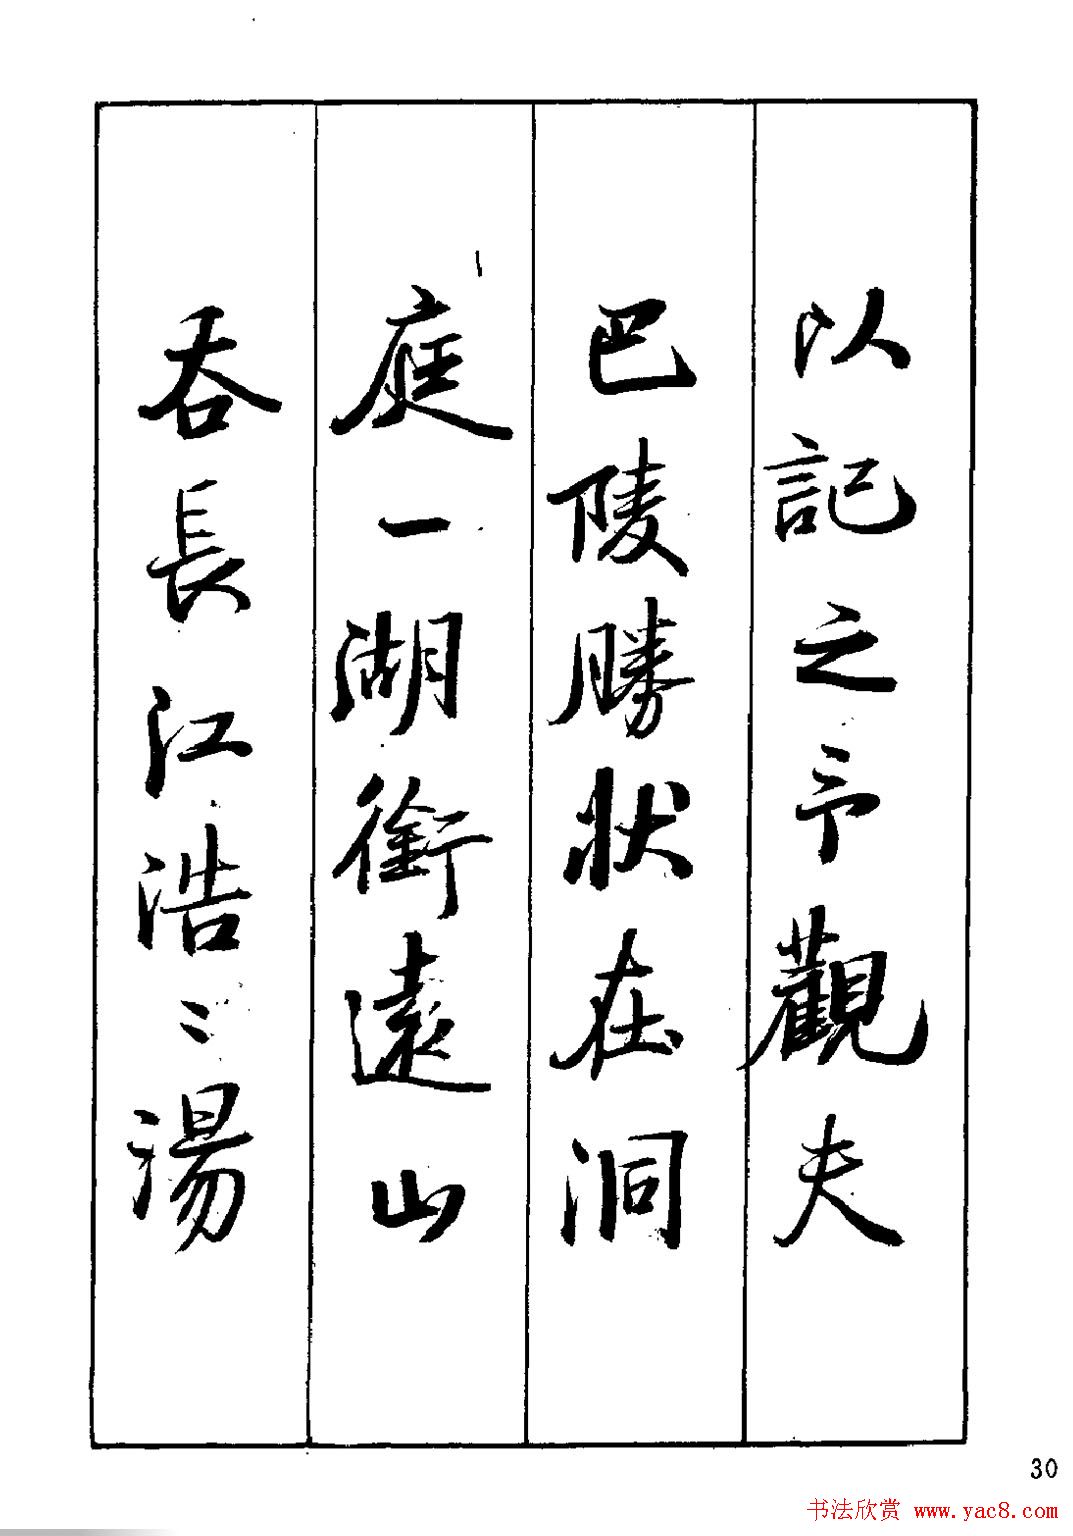 以記之予觀夫
巴陵勝状在洞
庭一湖銜遠山
吞長江浩〻湯
30
书法欣赏 www.yac8.com